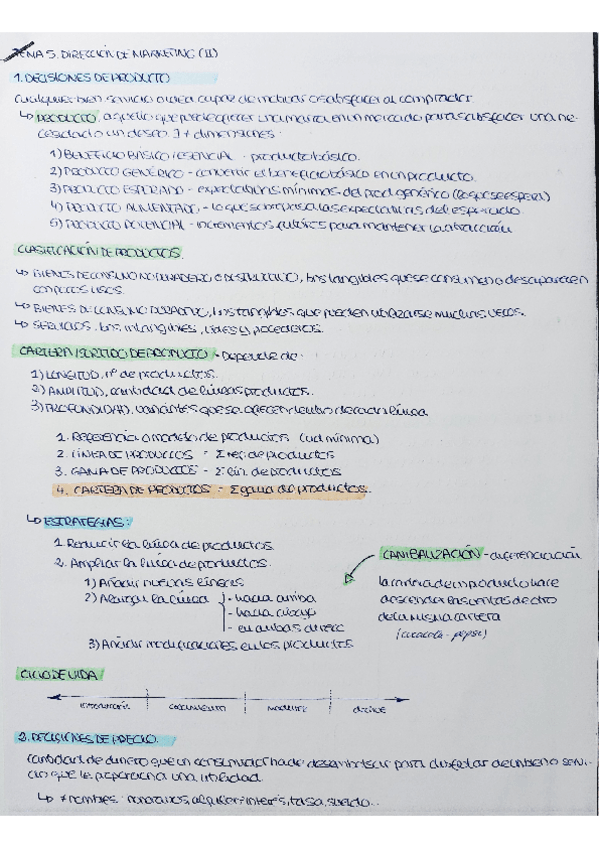 TEMA 5. DIRECCIÓN DE MARKETING (II)
1. DECISIONES DE PRODUCTO
Cualquier bien servicio o idea capaz de motivar o satisfacer al comprador
↳ PRODUCTO, aquello que puede ofrecer una marca en un mercado para satisfacer una ne-
cesidad o un deseo. ∃ ≠ dimensiones:
1) BENEFICIO BÁSICO / ESENCIAL - producto básico.
2) PRODUCTO GENÉRICO - convertir el beneficio básico en un producto.
3) PRODUCTO ESPERADO - expectativas mínimas del prod. genérico (lo que se espera)
4) PRODUCTO AUMENTADO - lo que sobrepasa las expectativas del esperado.
5) PRODUCTO POTENCIAL - incrementos futuros para mantener la atracción
CLASIFICACIÓN DE PRODUCTOS.
↳ BIENES DE CONSUMO NO DURADERO O DESTRUCTIVO, bns tangibles que se consumen o desaparecen
con pocos usos.
↳ BIENES DE CONSUMO DURADERO, bns tangibles que pueden utilizarse muchas veces.
↳ SERVICIOS. bns intangibles, ideas y
CARTERA / SURTIDO DE PRODUCTO - Depende de:
1) LONGITUD, nº de productos.
2) AMPLITUD, cantidad de líneas productos.
3) PROFUNDIDAD, variantes que se ofrecen dentro de cada línea
1. Referencia o modelo de productos (ud mínima)
2. LÍNEA DE PRODUCTOS - Σ ref. de productos
3. GAMA DE PRODUCTOS - Σ lín. de productos
4. CARTERA DE PRODUCTOS - Σ gama de productos.
↳ ESTRATEGIAS:
1. Reducir la línea de productos
2. Ampliar la línea de productos.
1) Añadir nuevas líneas
2) Alargar la línea - hacia arriba
- hacia abajo
- en ambas direcc
3) Añadir modificaciones en los productos
CANIBALIZACIÓN - diferenciación
la entrada de un producto hace
descender las ventas de otro
de la misma cartera
(cocacola - pepsi)
CICLO DE VIDA
crecimiento madurez declive
2. DECISIONES DE PRECIO.
Cantidad de dinero que un consumidor ha de desembolsar para disfrutar de un bien o servi-
cio que le proporciona una utilidad
↳ ≠ nombres: honorarios, alquiler, interés, tasa, sueldo...